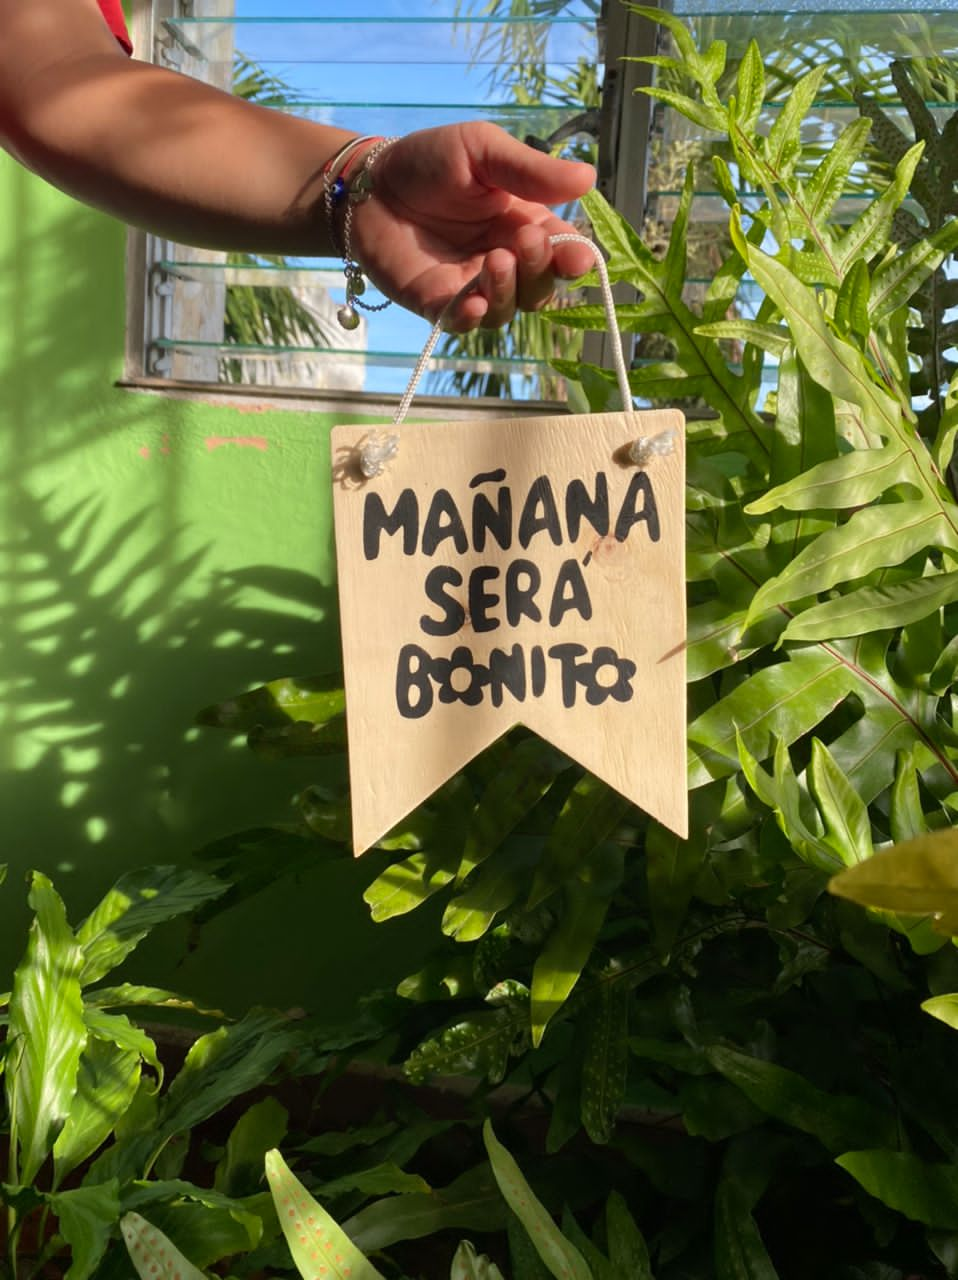 MAÑANA
SERÁ
BONITO